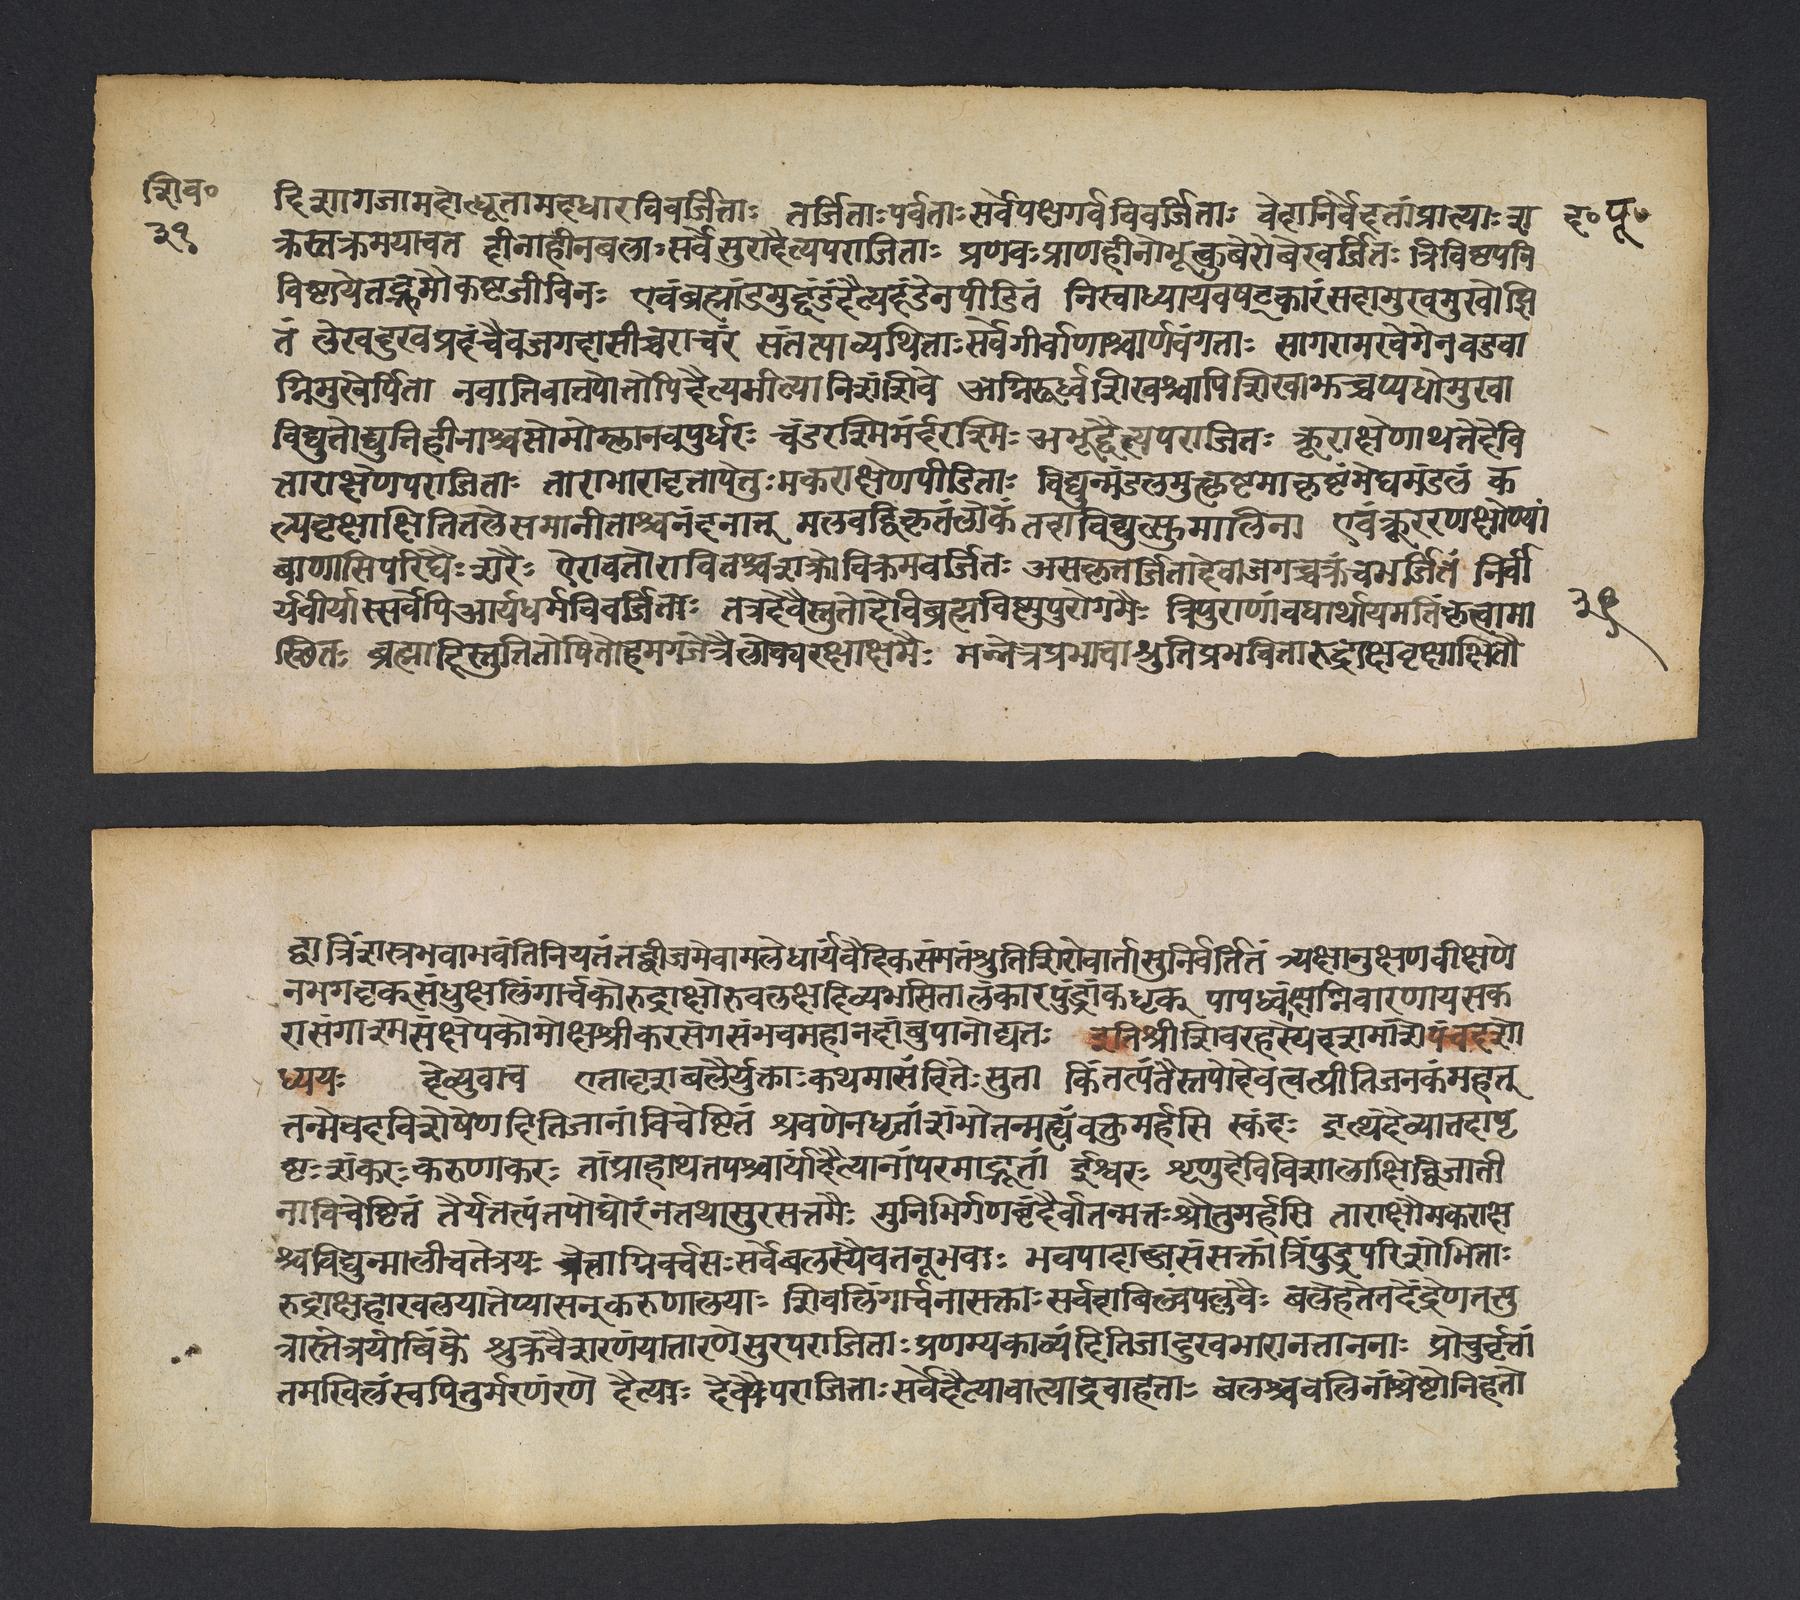 शिव॰
३९
दिशागजामदोत्धूतामदधारविवर्जिताः तर्जिताःपर्वताःसर्वेपक्षगर्वविवर्जिताः वेदानिर्वेदतांप्राप्याःश
ह॰पू॰
क्रस्तक्रमयावत दीनाहीनबलाःसर्वेसुरादैत्यपराजिताः प्रणवःप्राणहीनोभूत्कुबेरोबेरवर्जितः त्रिविष्टपनि
विष्टायेतद्रुमौकष्टजीविनः एवंब्रह्मांडमुद्दंडंदैत्यदंडेनपीडितं निस्वाध्यायवषट्कारंसदामुखमुखोझि
तं लेखदुःखप्रदंचैवजगदासीच्चराचरं संतत्पाव्यथिताःसर्वेगीर्वाणाश्चार्णवंगताः सागरामरवेगेनवडवा
ग्निमुखेर्पिता नवातिवातपोतोपिदैत्यभीत्यानिशंशिवे अग्निरूर्ध्वशिखश्चापिशिखाभच्चप्यधोमुखा
विद्युतोद्युतिहीनाश्चसोमोम्लानवपुर्धरः चंडरश्मिर्मंदरश्मिः अभूद्दैत्यपराजितः क्रूराक्षेणाथतेदेवि
ताराक्षेणपराजिताः ताराभारावृत्तापेतुःमकराक्षेणपीडिताः विद्युन्मंडलमुत्कृष्टमाकृष्टंमेघमंडलं क
ल्पवृक्षाक्षितितलेसमानीताश्चनंदनात् मलवद्विकृतंलोकं तदाविद्युत्सुमालिना एवंक्रूररणक्षोण्यां
बाणासिपरिघैःशरैः ऐरावतोरावितश्चशक्रोविक्रमवर्जितः असकृत्तर्जितादेवाजगच्चक्रंचभर्जितं निर्वी
र्यवीर्यास्सर्वेपिआर्यधर्मविवर्जिताः तत्रदेवैस्तुतोदेविब्रह्मविष्णुपुरोगमैः त्रिपुराणांवधार्थायमतिंकृत्वामा
३९
स्थितः ब्रह्मादिस्तुतितोषितोहमगजेत्रैलोक्यरक्षाक्षमैः मन्नेत्रप्रभावाश्रुतिप्रभवितारुद्राक्षवृक्षाक्षितौ
द्वात्रिंशत्प्रभवाभवंतिनियतंतद्बीजमेवामलेधार्यंवैदिकसंमतंश्रुतिशिरोवार्तासुनिर्वर्तितं त्र्यक्षानुक्षणवीक्षणे
नभगदृक्संधुक्षलिंगार्चकोरुद्राक्षोरुवलक्षदिव्यभसितालंकारपुंड्रांकधृक् पापध्वंक्षाग्निवारणायसक
शसंगारमसंक्षेपकोमोक्षश्रीकरसंगसंभवमहानंदांबुपानोद्यतः इतिश्रीशिवरहस्येहरामांशेपंचदशो
ध्ययः देव्युवाच एतादृशबलैर्युक्ताःकथमासंदितेःसुता किंतत्पंतैस्तपोदेवत्वत्प्रीतिजनकंमहत्
तन्मेवदविशेषेणदितिजानांविचेष्टितं श्रवणेनधृतांशंभोतन्मह्यंवक्तुमर्हसि स्कंदः इत्थंदेव्यातदापृ
ष्टःशंकरःकरुणाकरः तांप्राहाथतपश्चार्यादैत्यानांपरमाद्भूतां ईश्वरः शृणुदेविविशालाक्षिद्विजाती
नाविचेष्टितं तैर्यत्तत्पंतपोघोरंनेतथासुरसत्तमैः मुनिभिर्गणवृंदैर्वातन्मत्तःश्रोतुमर्हसि ताराक्षोमकराक्ष
श्चविद्युन्मालीचतेत्रयः त्रेताग्निवर्चसःसर्वेबलस्यैवतनूभवाः भवपादाब्जसंसक्तांत्रिंपुड्रपरिशोभिताः
रुद्राक्षहारवलयातेप्यासन्करुणालयाः शिवलिंगार्चनासक्ताःसर्वदाबिल्वपल्लवैः बलेहतेतदेंद्रेणतत्सु
त्रास्तेत्रयोंबिके शुक्रंवैशरणंयातारणेसुरपराजिताः प्रणम्यकाव्यंदितिजादुःखभारानताननाः प्रोचुर्वृत्तां
तमखिलंस्वपितुर्मरणंरणे दैत्याः देवैःपराजिताःसर्वेदैत्यावात्याद्रवाहताः बलश्चबलिनांश्रेष्टोनिहतो